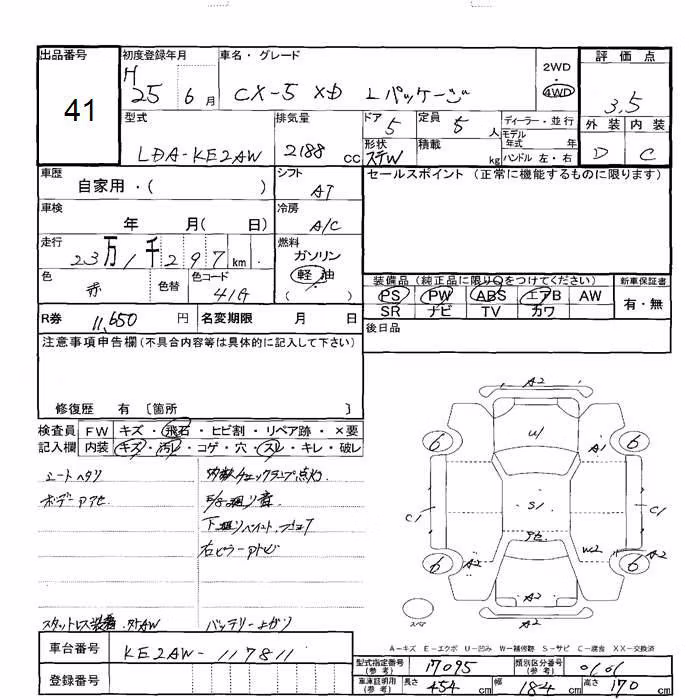 出品番号
41
初度登録年月
H 25 6月
車名・グレード
CX-5 XD Lパッケージ
2WD
・
4WD
評価点
3.5
外装 内装
D C
型式
LDA-KE2AW
排気量
2188 cc
ドア 5
定員 5 人
形状 STW
積載 kg
ディーラー・並行
モデル年式 年
ハンドル 左・右
車歴
自家用・( )
シフト
AT
セールスポイント (正常に機能するものに限ります)
車検
年 月( 日)
冷房
A/C
走行
23万1千297km
燃料
ガソリン
軽油
( )
色
赤
色替
色コード
41G
装備品 (純正品に限り○をつけてください)
PS PW ABS エアB AW
SR ナビ TV カワ
新車保証書
有・無
R券 11,650 円
名変期限 月 日
後日品
注意事項申告欄(不具合内容等は具体的に記入して下さい)
修復歴 有 〔箇所 〕
検査員記入欄
FW キズ・飛石・ヒビ割・リペア跡・×要
内装 キズ・汚レ・コゲ・穴・スレ・キレ・破レ
シートヘタリ
チェックランプ点灯
ボデーアセ
右ピラーアトビ
スタットレス装着
バッテリー上がり
A2
U1
A1
6
6
C1
S1
C1
6
6
A2
W2
A2
A2
A2
スペア
A-キズ E-エクボ U-凹み W-補修跡 S-サビ C-腐食 XX-交換済
車台番号
KE2AW-117811
登録番号
型式指定番号(参考) 17095
類別区分番号(参考) 0101
車庫証明用(参考) 長さ 454 cm 幅 184 cm 高さ 170 cm